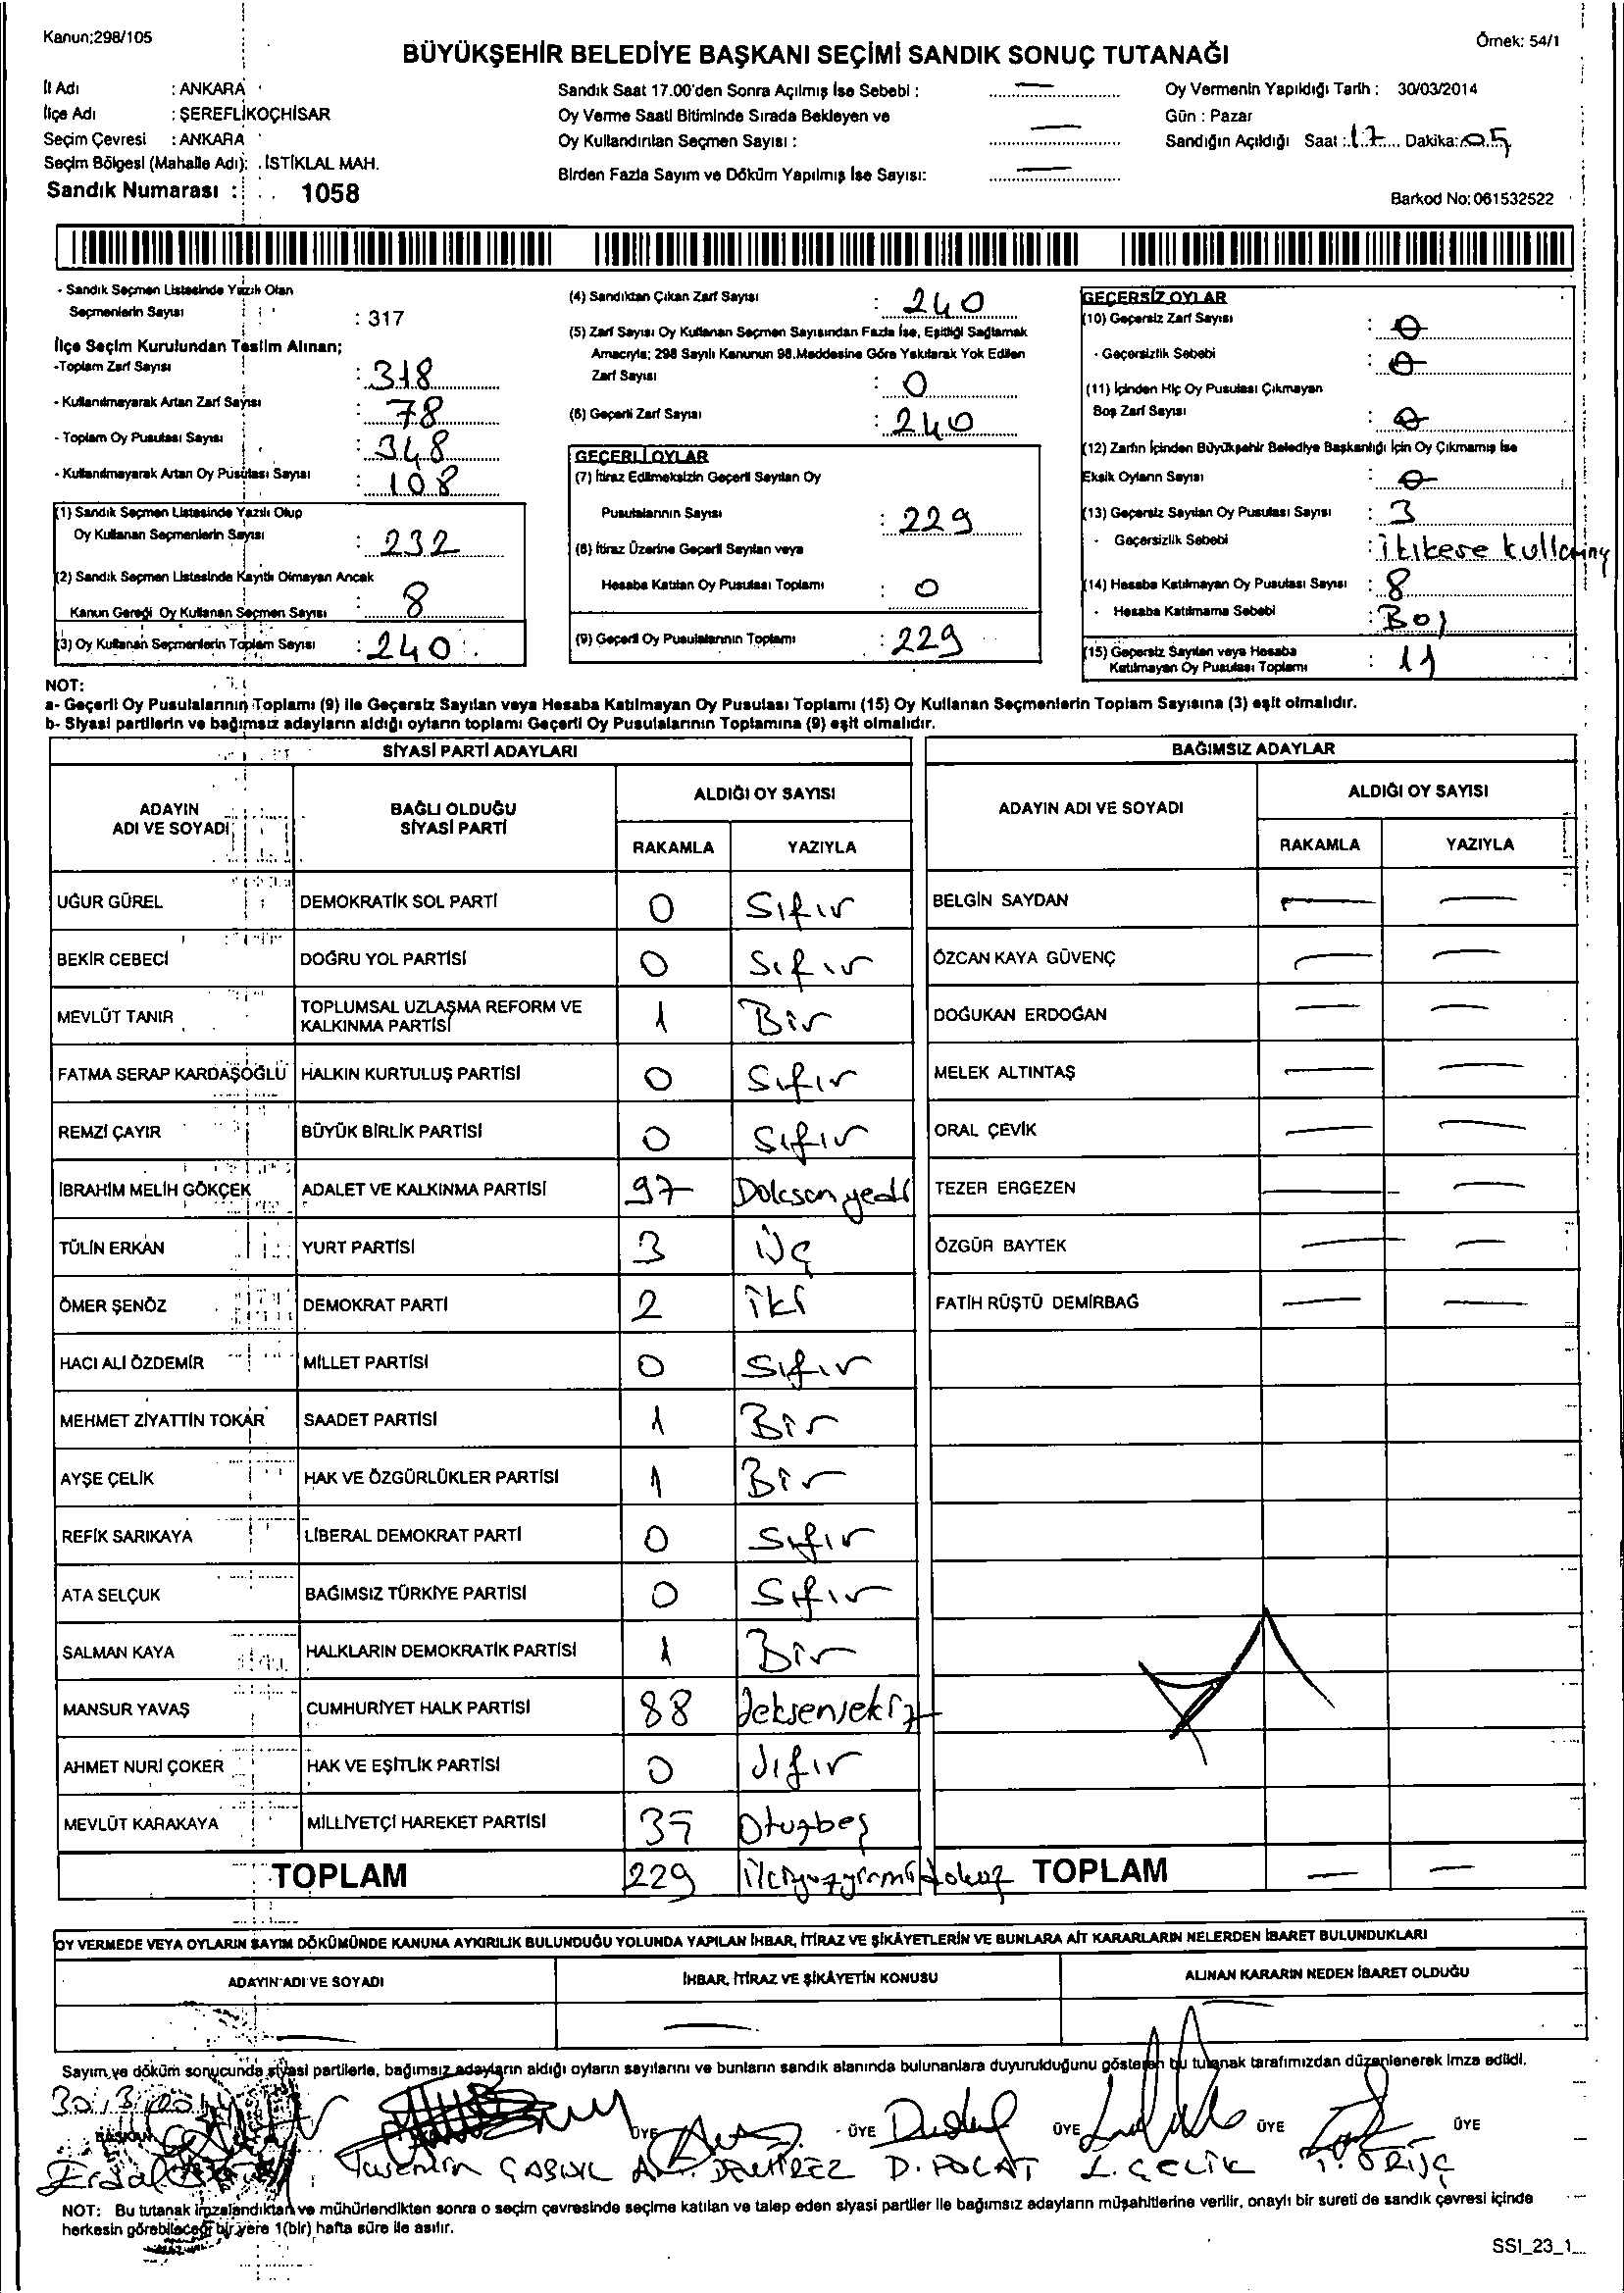 Kanun;298/105
Örnek: 54/1
BÜYÜKŞEHİR BELEDİYE BAŞKANI SEÇİMİ SANDIK SONUÇ TUTANAĞI
İl Adı : ANKARA
İlçe Adı : ŞEREFLİKOÇHİSAR
Seçim Çevresi : ANKARA
Seçim Bölgesi (Mahalle Adı): İSTİKLAL MAH.
Sandık Numarası : 1058
Sandık Saat 17.00'den Sonra Açılmış İse Sebebi :
Oy Verme Saati Bitiminde Sırada Bekleyen ve
Oy Kullandırılan Seçmen Sayısı :
Birden Fazla Sayım ve Döküm Yapılmış İse Sayısı:
Oy Vermenin Yapıldığı Tarih : 30/03/2014
Gün : Pazar
Sandığın Açıldığı Saat : 17 Dakika: 05
Barkod No: 061532522
- Sandık Seçmen Listesinde Yazılı Olan
Seçmenlerin Sayısı : 317
İlçe Seçim Kurulundan Teslim Alınan;
-Toplam Zarf Sayısı : 318
- Kullanılmayarak Artan Zarf Sayısı : 78
- Toplam Oy Pusulası Sayısı : 348
- Kullanılmayarak Artan Oy Pusulası Sayısı : 108
(1) Sandık Seçmen Listesinde Yazılı Olup
Oy Kullanan Seçmenlerin Sayısı : 232
(2) Sandık Seçmen Listesinde Kayıtlı Olmayan Ancak
Kanun Gereği Oy Kullanan Seçmen Sayısı : 8
(3) Oy Kullanan Seçmenlerin Toplam Sayısı : 240
(4) Sandıktan Çıkan Zarf Sayısı : 240
(5) Zarf Sayısı Oy Kullanan Seçmen Sayısından Fazla İse, Eşitliği Sağlamak
Amacıyla; 298 Sayılı Kanunun 98.Maddesine Göre Yakılarak Yok Edilen
Zarf Sayısı : 0
(6) Geçerli Zarf Sayısı : 240
GEÇERLİ OYLAR
(7) İtiraz Edilmeksizin Geçerli Sayılan Oy
Pusulalarının Sayısı : 229
(8) İtiraz Üzerine Geçerli Sayılan veya
Hesaba Katılan Oy Pusulası Toplamı : 0
(9) Geçerli Oy Pusulalarının Toplamı : 229
GEÇERSİZ OYLAR
(10) Geçersiz Zarf Sayısı : 0
- Geçersizlik Sebebi : 0
(11) İçinden Hiç Oy Pusulası Çıkmayan
Boş Zarf Sayısı : 0
(12) Zarfın İçinden Büyükşehir Belediye Başkanlığı İçin Oy Çıkmamış İse
Eksik Oyların Sayısı : 0
(13) Geçersiz Sayılan Oy Pusulası Sayısı : 3
- Geçersizlik Sebebi : iki kere
(14) Hesaba Katılmayan Oy Pusulası Sayısı : 8
- Hesaba Katılmama Sebebi : Boş
(15) Geçersiz Sayılan veya Hesaba
Katılmayan Oy Pusulası Toplamı : 11
NOT:
a- Geçerli Oy Pusulalarının Toplamı (9) ile Geçersiz Sayılan veya Hesaba Katılmayan Oy Pusulası Toplamı (15) Oy Kullanan Seçmenlerin Toplam Sayısına (3) eşit olmalıdır.
b- Siyasi partilerin ve bağımsız adayların aldığı oyların toplamı Geçerli Oy Pusulalarının Toplamına (9) eşit olmalıdır.
SİYASİ PARTİ ADAYLARI BAĞIMSIZ ADAYLAR
ADAYIN ADI VE SOYADI BAĞLI OLDUĞU SİYASİ PARTİ ALDIĞI OY SAYISI ADAYIN ADI VE SOYADI ALDIĞI OY SAYISI
RAKAMLA YAZIYLA RAKAMLA YAZIYLA
UĞUR GÜREL DEMOKRATİK SOL PARTİ 0 Sıfır BELGİN SAYDAN
BEKİR CEBECİ DOĞRU YOL PARTİSİ 0 Sıfır ÖZCAN KAYA GÜVENÇ
MEVLÜT TANIR TOPLUMSAL UZLAŞMA REFORM VE KALKINMA PARTİSİ 1 Bir DOĞUKAN ERDOĞAN
FATMA SERAP KARDAŞOĞLU HALKIN KURTULUŞ PARTİSİ 0 Sıfır MELEK ALTINTAŞ
REMZİ ÇAYIR BÜYÜK BİRLİK PARTİSİ 0 Sıfır ORAL ÇEVİK
İBRAHİM MELİH GÖKÇEK ADALET VE KALKINMA PARTİSİ 97 Doksan yedi TEZER ERGEZEN
TÜLİN ERKAN YURT PARTİSİ 3 Üç ÖZGÜR BAYTEK
ÖMER ŞENÖZ DEMOKRAT PARTİ 2 iki FATİH RÜŞTÜ DEMİRBAĞ
HACI ALİ ÖZDEMİR MİLLET PARTİSİ 0 Sıfır
MEHMET ZİYATTİN TOKAR SAADET PARTİSİ 1 Bir
AYŞE ÇELİK HAK VE ÖZGÜRLÜKLER PARTİSİ 1 Bir
REFİK SARIKAYA LİBERAL DEMOKRAT PARTİ 0 Sıfır
ATA SELÇUK BAĞIMSIZ TÜRKİYE PARTİSİ 0 Sıfır
SALMAN KAYA HALKLARIN DEMOKRATİK PARTİSİ 1 Bir
MANSUR YAVAŞ CUMHURİYET HALK PARTİSİ 88 Seksensekiz
AHMET NURİ ÇOKER HAK VE EŞİTLİK PARTİSİ 0 Sıfır
MEVLÜT KARAKAYA MİLLİYETÇİ HAREKET PARTİSİ 35 Otuzbeş
TOPLAM 229 ikiyüzyirmidokuz TOPLAM
OY VERMEDE VEYA OYLARIN SAYIM DÖKÜMÜNDE KANUNA AYKIRILIK BULUNDUĞU YOLUNDA YAPILAN İHBAR, İTİRAZ VE ŞİKÂYETLERİN VE BUNLARA AİT KARARLARIN NELERDEN İBARET BULUNDUKLARI
ADAYIN ADI VE SOYADI İHBAR, İTİRAZ VE ŞİKÂYETİN KONUSU ALINAN KARARIN NEDEN İBARET OLDUĞU
Sayım ve döküm sonucunda siyasi partilerle, bağımsız adayların aldığı oyların sayılarını ve bunların sandık alanında bulunanlara duyurulduğunu gösteren bu tutanak tarafımızdan düzenlenerek imza edildi.
30/3/2014
BAŞKAN ÜYE ÜYE ÜYE ÜYE ÜYE
Erdal D. POLAT L. ÇELİK
NOT: Bu tutanak imzalandıktan ve mühürlendikten sonra o seçim çevresinde seçime katılan ve talep eden siyasi partiler ile bağımsız adayların müşahitlerine verilir, onaylı bir sureti de sandık çevresi içinde
herkesin görebileceği bir yere 1(bir) hafta süre ile asılır.
SSI_23_1